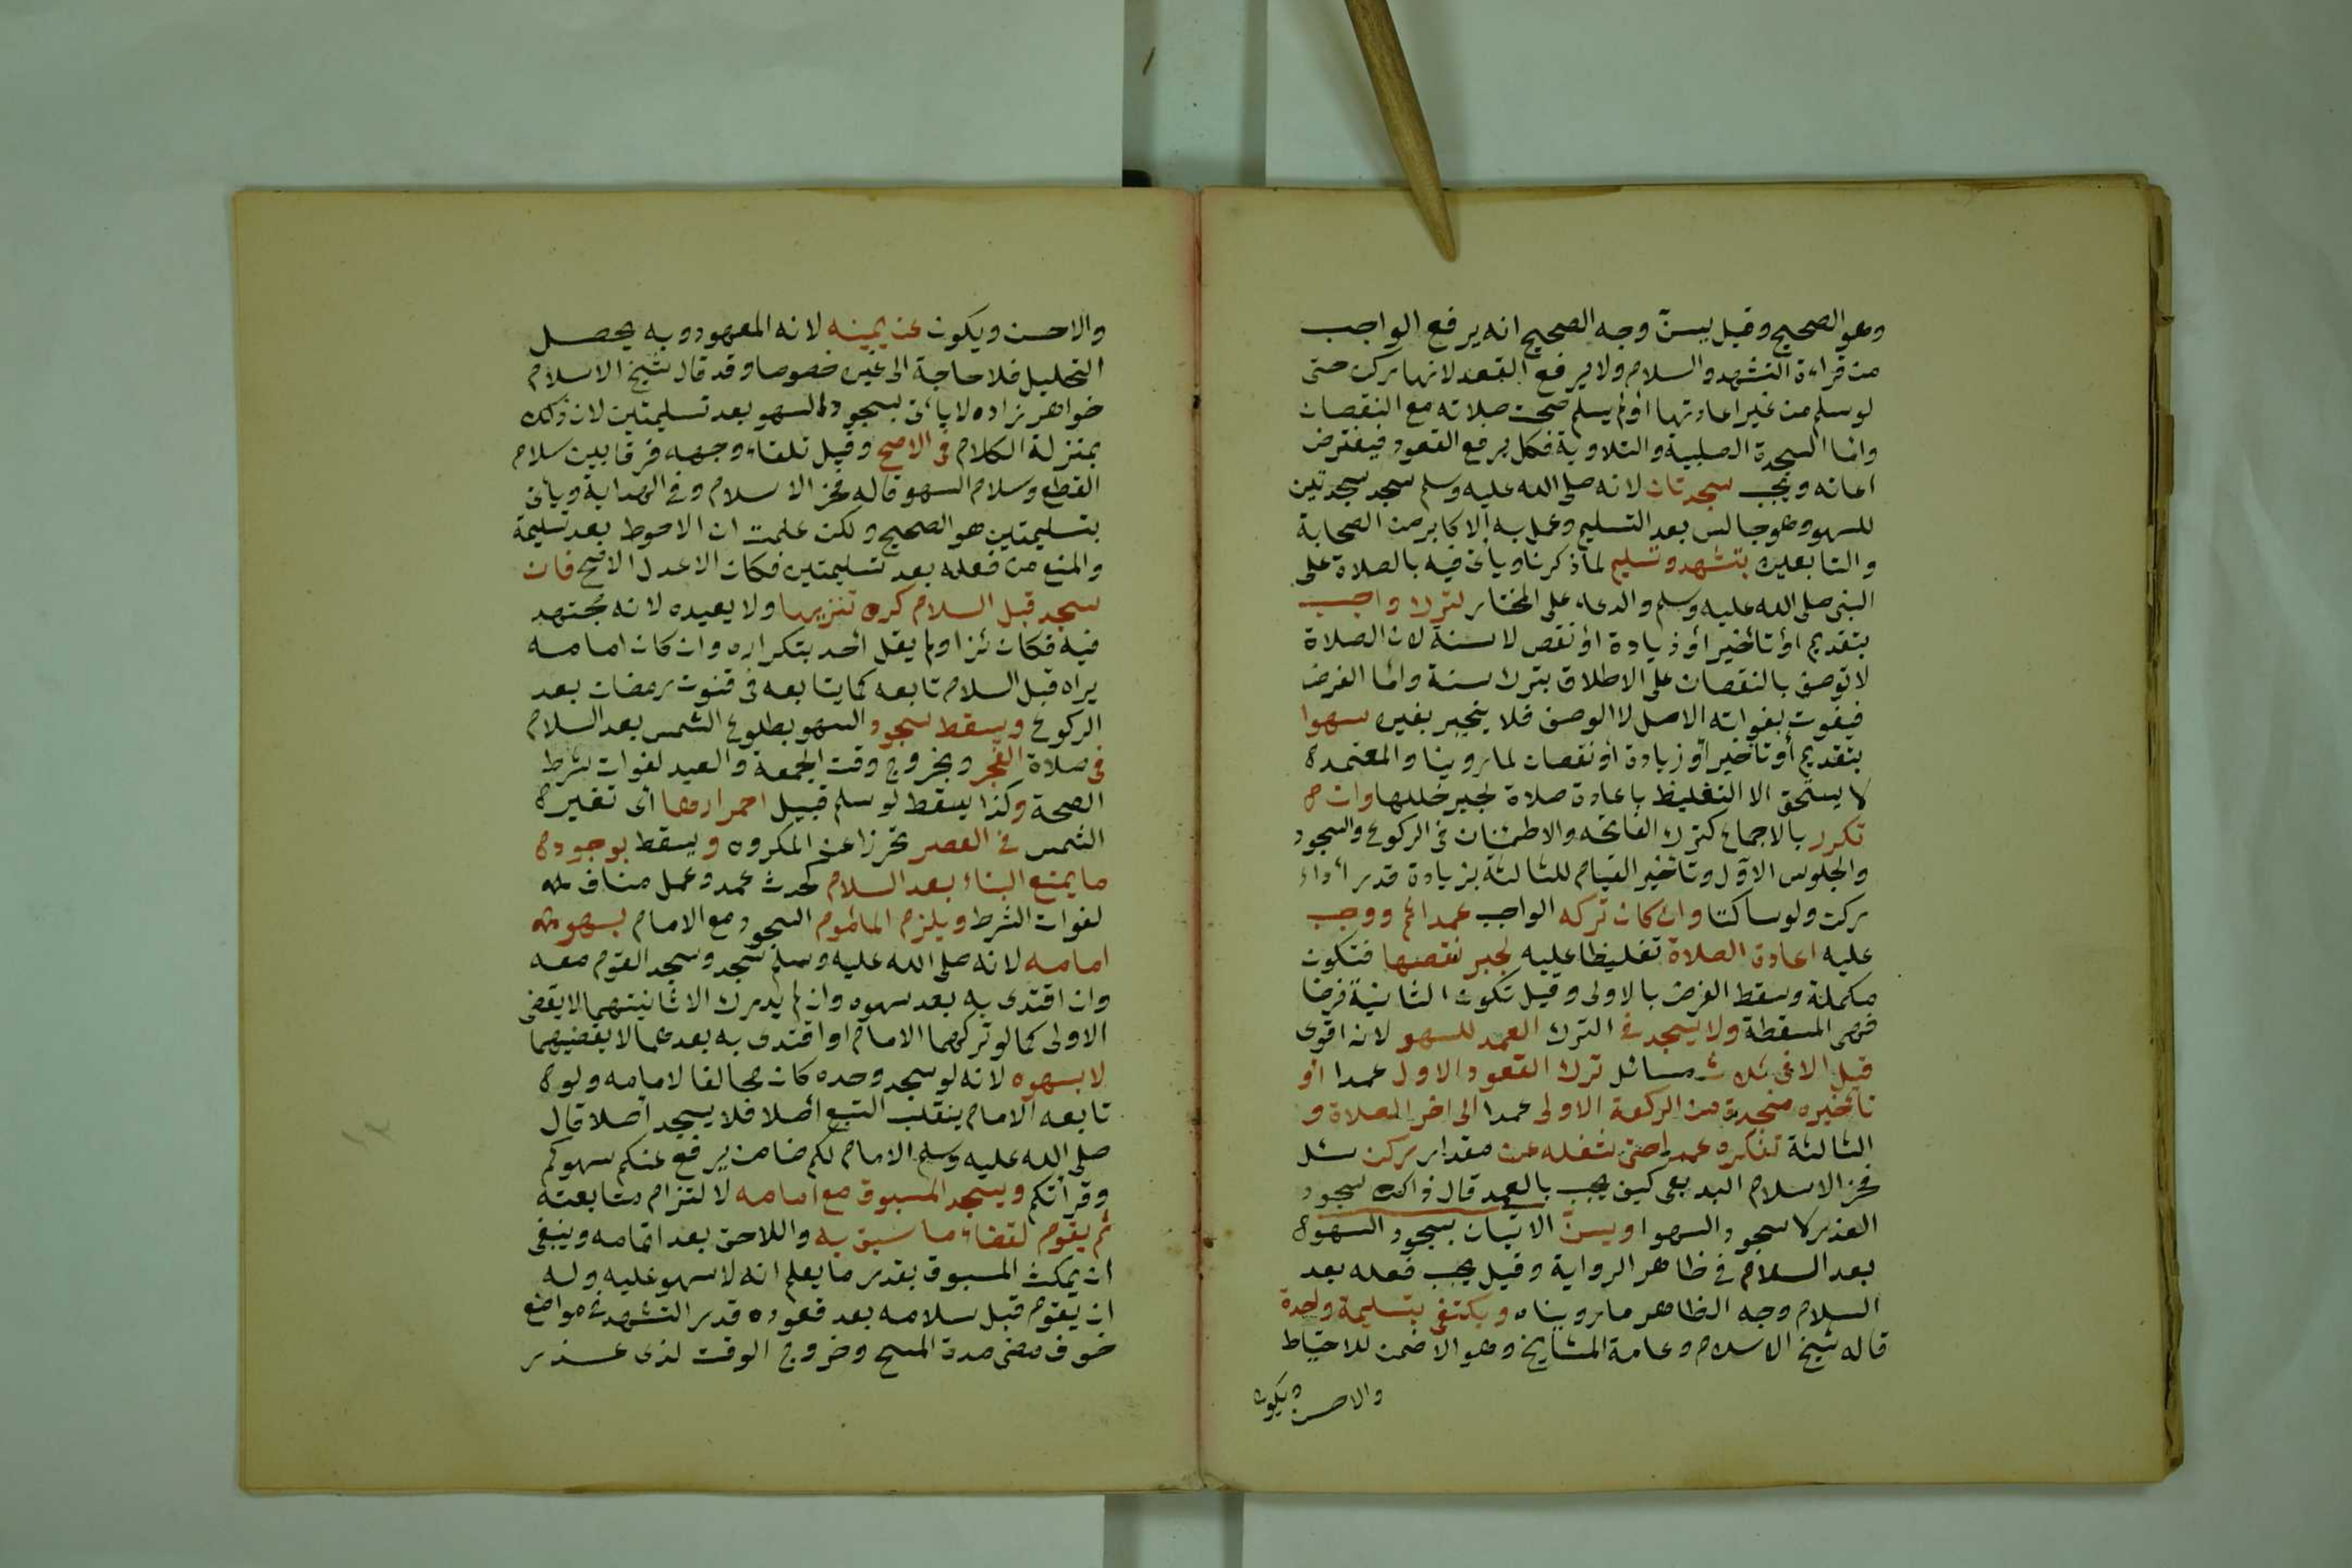 وهو الصحيح وقيل يسنّ وجه الصحيح انه يرفع الواجب
من قراءة التشهد والسلام ولا يرفع القعد لانها ركن حتى
لو سلم من غير اعادتها او لم يسلم صحت صلاته مع النقصان
واما السجدة الصلبية والتلاوية فكل يرفع القعود فيفترض
اعاته ويجب سجدتان لانه صلى الله عليه وسلم سجد سجدتين
للسهو وهو جالس بعد التسليم وعمل به الاكابر من الصحابة
والتابعين بتشهد وتسليم لما ذكرنا ويأتى فيه بالصلاة على
النبى صلى الله عليه وسلم والدعاء على المختار لترك واجب
بتقديم أو تأخير أو زيادة أو نقص لا سنة لان الصلاة
لا توصف بالنقصان على الاطلاق بترك سنة واما الفرض
فيفوت بفواته الاصل لا الوصف فلا ينجبر بغيره سهوا
بتقديم أو تأخير أو زيادة أو نقصان لما روينا والمعتمد
لا يستحق الا التغليظ باعادة صلاة لجبر خللها وان
تكرر بالاجماع كترك الفاتحه والاطمئنان فى الركوع والسجود
والجلوس الاول وتأخير القيام للثالثة بزيادة قدر أداء
ركن ولو ساكتا وان كان تركه الواجب عمدا اثم ووجب
عليه اعادة الصلاة تغليظا عليه لجبر نقصها فتكون
مكملة وسقط الفرض بالاولى وقيل تكون الثانية فرضا
فهى المسقطة ولا يسجد فى الترك العمد للسهو لانه اقوى
قيل الا فى ثلاث مسائل ترك القعود الاول عمدا أو
تأخيره سجدة من الركعة الاولى عمدا الى اخر الصلاة و
الثالثة تفكره عمدا حتى شغله عن مقدار ركن سئل
فخر الاسلام البديعى كيف يجب بالعمد قال ذاك سجود
العذر لا سجود السهو ويسنّ الاتيان بسجود السهو
بعد السلام فى ظاهر الرواية وقيل يجب فعله بعد
السلام وجه الظاهر ما رويناه ويكتفى بتسليمة واحدة
قاله شيخ الاسلام وعامة المشايخ وهو الاضمن للاحتياط
والاحسن ويكون
والاحسن ويكون عن يمينه لانه المعهود وبه يحصل
التحليل فلا حاجة الى غيره خصوصا وقد قال شيخ الاسلام
خواهر زاده لا يأتى بسجود السهو بعد تسليمتين لان ذلك
بمنزلة الكلام فى الاصح وقيل تلقاء وجهه فرقا بين سلام
القطع وسلام السهو قاله فخر الاسلام وفى الهداية ويأتى
بتسليمتين هو الصحيح ولكن علمت ان الاحوط بعد تسليمة
والمنع من فعله بعد تسليمتين فكان الاعدل الاصح فان
سجد قبل السلام كره تنزيها ولا يعيده لانه مجتهد
فيه فكان جائزا ولم يقل أحد بتكراره وان كان امامه
يراه قبل السلام تابعه كما يتابعه فى قنوت رمضان بعد
الركوع ويسقط سجود السهو بطلوع الشمس بعد السلام
فى صلاة الفجر وبخروج وقت الجمعة والعيد لفوات شرط
الصحة وكذا يسقط لو سلم قبيل احمرارها أى تغير
الشمس فى العصر تحرزا عن المكروه ويسقط بوجود
ما يمنع البناء بعد السلام كحدث عمد وعمل مناف
لفوات الشرط ويلزم المأموم السجود مع الامام بسهو
امامه لانه صلى الله عليه وسلم سجد وسجد القوم معه
وان اقتدى به بعد سهوه وان لم يدرك الا ثانيتهما لا يقضى
الاولى كما لو تركهما الامام او اقتدى به بعدهما لا يقضيهما
لا بسهوه لانه لو سجد وحده كان مخالفا لامامه ولو
تابعه الامام ينقلب التبع أصلا فلا يسجد أصلا قال
صلى الله عليه وسلم الامام لكم ضامن يرفع عنكم سهوكم
وقرأتكم ويسجد المسبوق مع امامه لالتزام متابعته
ثم يقوم لقضاء ما سبق به واللاحق بعد اتمامه وينبغى
ان يمكث المسبوق بقدر ما يعلم انه لا سهو عليه وله
ان يقوم قبل سلامه بعد قعوده قدر التشهد فى مواضع
خوف مضى مدة المسح وخروج الوقت لذى عذر